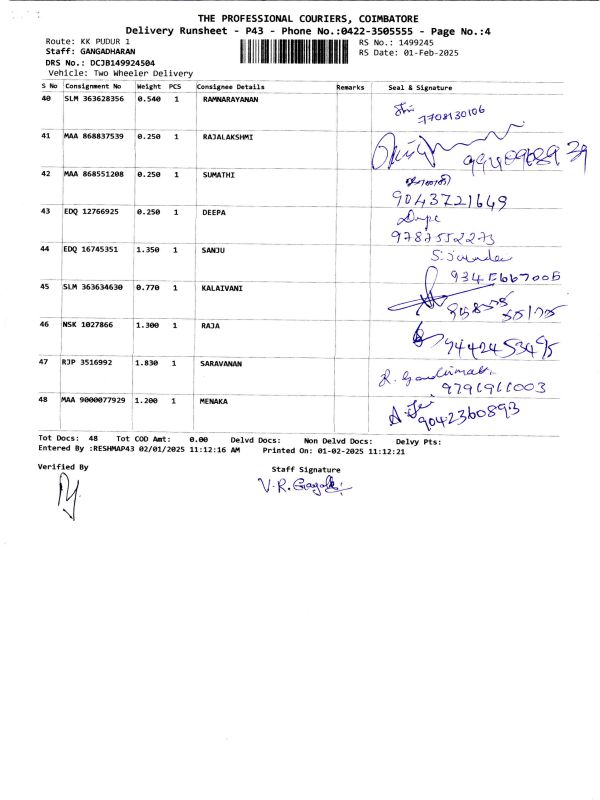 THE PROFESSIONAL COURIERS, COIMBATORE
Delivery Runsheet - P43 - Phone No.:0422-3505555 - Page No.:4
Route: KK PUDUR 1
RS No.: 1499245
Staff: GANGADHARAN
RS Date: 01-Feb-2025
DRS No.: DCJB149924504
Vehicle: Two Wheeler Delivery
S No Consignment No Weight PCS Consignee Details Remarks Seal & Signature
40 SLM 363628356 0.540 1 RAMNARAYANAN
7708130106
41 MAA 868837539 0.250 1 RAJALAKSHMI
42 MAA 868551208 0.250 1 SUMATHI
9043721649
43 EDQ 12766925 0.250 1 DEEPA
9787552273
44 EDQ 16745351 1.350 1 SANJU
9345667005
45 SLM 363634630 0.770 1 KALAIVANI
46 NSK 1027866 1.300 1 RAJA
9442453495
47 RJP 3516992 1.830 1 SARAVANAN
9791911003
48 MAA 9000077929 1.200 1 MENAKA
9042360893
Tot Docs: 48 Tot COD Amt: 0.00 Delvd Docs: Non Delvd Docs: Delvy Pts:
Entered By :RESHMAP43 02/01/2025 11:12:16 AM Printed On: 01-02-2025 11:12:21
Verified By
Staff Signature